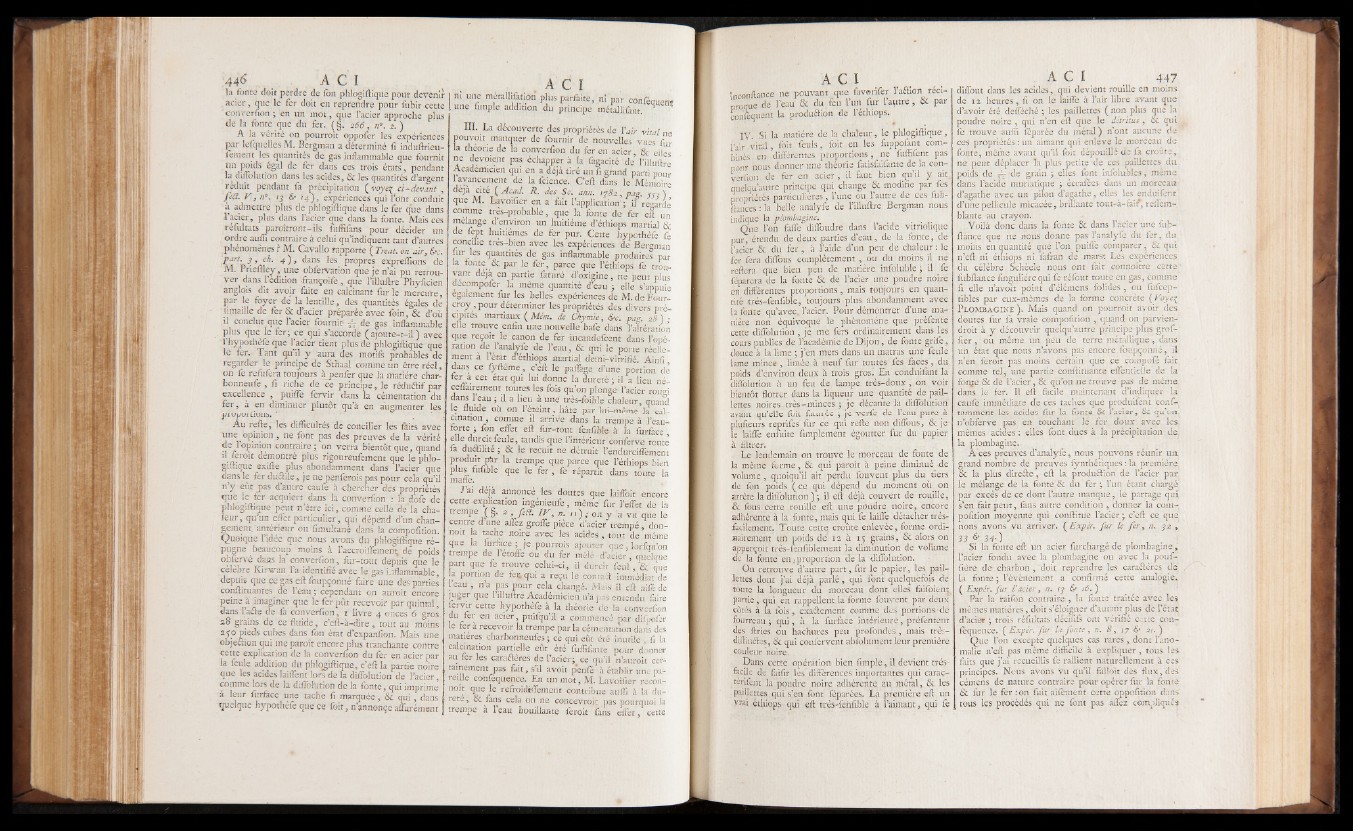 446 A C I
la fonte doit perdre de son phlogistique pour devenir
acier, que le fer doit en reprendre pour subir cette
conversion ; en un mot, que l'acier approche plus
de la fonte que du fer. (§. 266, n°. 2.)
A la vérité on pourroit opposer les expériences
par lesquelles M. Bergman a déterminé si industrieu-
sement les quantités de gas inflammable que fournit
un poids égal de fer dans ces trois états, pendant
la dissolution dans les acides, & les quantités d'argent
réduit pendant sa précipitation (voyez ci-devant,
sect. V, n°. 13 & 14), expériences qui l'ont conduit
à admettre plus de phlogistique dans le fer que dans
l'acier, plus dans l'acier que dans la fonte. Mais ces
résultats paroîtront-ils suffisans pour décider un
ordre aussi contraire à celui qu'indiquent tant d'autres
phénomènes ? M. Cavallo rapporte (Treat. on air, &c.
part. 3, ch. 4), dans les propres expressions de
M. Priestley, une observation que je n'ai pu retrou-
ver dans l'édition françoise, que l'illustre Physicien
anglois dit avoir faite en calcinant sur le mercure,
par le foyer de la lentille, des quantités égales de
limaille de fer & d'acier préparée avec soin, & d'où
il conclut que l'acier fournit de gas inflammable
plus que le fer; ce qui s'accorde (ajoute-t-il) avec
l'hypothèse que l'acier tient plus de phlogistique que
le fer. Tant qu'il y aura des motifs probables de
regarder le principe de Sthaal comme un être réel,
on se refusera toujours à penser que la matière char-
bonneuse, si riche de ce principe, le réductif par
excellence, puisse servir dans la cémentation du
fer, à en diminuer plutôt qu'à en augmenter les
proportions.
Au reste, les difficultés de concilier les faits avec
une opinion, ne sont pas des preuves de la vérité
de l'opinion contraire ; on verra bientôt que, quand
il seroit démontré plus rigoureusement que le phlo-
gistique existe plus abondamment dans l'acier que
dans le fer ductile, je ne penserois pas pour cela qu'il
n'y eût pas d'autre cause à chercher des propriétés
que le fer acquiert dans la conversion : la dose de
phlogistique peut n'être ici, comme celle de la cha-
leur, qu'un effet particulier, qui dépend d'un chan-
gement antérieur ou simultané dans la composition.
Quoique l'idée que nous avons du phlogistique ré-
pugne beaucoup moins à l'accroissement de poids
observé dans la conversion, sur-tout depuis que le
célèbre Kirwan l'a identifié avec le gas inflammable,
depuis que ce gas est soupçonné faire une des parties
constituantes de l'eau ; cependant on auroit encore
peine à imaginer que le fer pût recevoir par quintal,
dans l'acte de sa conversion, 1 livre 4 onces 6 gros
28 grains de ce fluide, c'est-à-dire, tout au moins
250 pieds cubes dans son état d'expansion. Mais une
objection qui me paroît encore plus tranchante contre
cette explication de la conversion du fer en acier par
la seule addition du phlogistique, c'est la partie noire
que les acides laissent lors de la dissolution de l'acier,
comme lors de la dissolution de la fonte, qui imprime
à leur surface une tache si marquée, & qui, dans
quelque hypothèse que ce soit, n'annonce assurément
A C I
ni une métallisation plus parfaite, ni par conséquent
une simple addition du principe métallisant.
III. La découverte des propriétés de l'air vital ne
pouvoit manquer de fournir de nouvelles vues sur
la théorie de la conversion du fer en acier, & elles
ne devoient pas échapper à la sagacité de l'illustre
Académicien qui en a déjà tiré un si grand parti pour
l'avancement de la science. C'est dans le Mémoire
déjà cité (Acad. R. des Sc. ann. 1782, pag. 553),
que M. Lavoisier en a fait l'application ; il regarde
comme très-probable, que la fonte de fer est un
mélange d'environ un huitième d'éthiops martial &
de sept huitièmes de fer pur. Cette hypothèse se
concilie très-bien avec les expériences de Bergman
sur les quantités de gas inflammable produites par
la fonte & par le fer, parce que l'éthiops se trou-
vant déjà en partie saturé d'origine, ne peut plus
décomposer la même quantité d'eau ; elle s'appuie
également sur les belles expériences de M. de Four-
croy, pour déterminer les propriétés des divers pré-
cipités martiaux (Mém. de Chymie, &c. pag. 26) ;
elle trouve enfin une nouvelle base dans l'altération
que reçoit le canon de fer incandescent dans l'opé-
ration de l'analyse de l'eau, & qui le porte réelle-
ment à l'état d'éthiops martial demi-vitrifié. Ainsi,
dans ce système, c'est le passage d'une portion de
fer à cet état qui lui donne la dureté ; il a lieu né-
cessairement toutes les fois qu'on plonge l'acier rougi
dans l'eau ; il a lieu à une très-foible chaleur, quand
le fluide où on l'éteint, hâte par lui-même la cal-
cination, comme il arrive dans la trempe à l'eau-
forte ; son effet est sur-tout sensible à la surface,
elle durcit seule, tandis que l'intérieur conserve toute
sa ductilité ; & le recuit ne détruit l'endurcissement
produit par la trempe que parce que l'éthiops bien
plus fusible que le fer, se répartit dans toute la
masse.
J'ai déjà annoncé les doutes que laissoit encore
cette explication ingénieuse, même sur l'effet de la
trempe (§. 2, sect. IV, n. 11) ; on y a vu que le
centre d'une assez grosse pièce d'acier trempé, don-
noit la tache noire avec les acides, tout de même
que la surface ; je pourrois ajouter que, lorsqu'on
trempe de l'étoffe ou du fer mêlé d'acier, quelque
part que se trouve celui-ci, il durcit seul, & que
la portion de fer qui a reçu le contact immédiat de
l'eau, n'a pas pour cela changé. Mais il est aisé de
juger que l'illustre Académicien n'a pas entendu faire
servir cette hypothèse à la théorie de la conversion
du fer en acier, puisqu'il a commencé par disposer
le fer à recevoir la trempe par la cémentation dans des
matières charbonneuses ; ce qui eût été inutile, si la
calcination partielle eût été suffisante pour donner
au fer les caractères de l'acier ; ce qu'il n'auroit cer-
tainement pas fait, s'il avoit pensé à établir une pa-
reille conséquence. En un mot, M. Lavoisier recon-
noît que le refroidissement contribue aussi à la du-
reté, & sans cela on ne concevroit pas pourquoi la
trempe à l'eau bouillante seroit sans effet, cette
A C I
circonstance ne pouvant que favoriser l'action réci-
proque de l'eau & du feu l'un sur l'autre, & par
conséquent la production de l'éthiops.
IV. Si la matière de la chaleur, le phlogistique,
l'air vital, soit seuls, soit en les supposant com-
binés en différentes proportions, ne suffisent pas
pour nous donner une théorie satisfaisante de la con-
version de fer en acier, il faut bien qu'il y ait
quelqu'autre principe qui change & modifie par ses
propriétés particulières, l'une ou l'autre de ces subs-
tances : la belle analyse de l'illustre Bergman nous
indique la plombagine.
Que l'on fasse dissoudre dans l'acide vitriolique
pur, étendu de deux parties d'eau, de la fonte, de
l'acier & du fer, à l'aide d'un peu de chaleur : le
fer sera dissous complètement, ou du moins il ne
restera que bien peu de matière insoluble ; il se
séparera de la fonte & de l'acier une poudre noire
en différentes proportions, mais toujours en quan-
tité très-sensible, toujours plus abondamment avec
la fonte qu'avec l'acier. Pour démontrer d'une ma-
nière non équivoque le phénomène que présente
cette dissolution, je me sers ordinairement dans les
cours publics de l'académie de Dijon, de fonte grise,
douce à la lime ; j'en mets dans un matras une seule
lame mince, limée à neuf sur toutes ses faces, du
poids d'environ deux à trois gros. En conduisant la
dissolution à un feu de lampe très-doux, on voit
bientôt flotter dans la liqueur une quantité de pail-
lettes noires très-minces ; je décante la dissolution
avant qu'elle soit saturée ; je verse de l'eau pure à
plusieurs reprises sur ce qui reste non dissous, & je
le laisse ensuite simplement égoutter sur du papier
à filtrer.
Le lendemain on trouve le morceau de fonte de
la même forme, & qui paroît à peine diminué de
volume, quoiqu'il ait perdu souvent plus du tiers
de son poids (ce qui dépend du moment où on
arrête la dissolution) ; il est déjà couvert de rouille,
& sous cette rouille est une poudre noire, encore
adhérente à la fonte, mais qui se laisse détacher très-
facilement. Toute cette croûte enlevée, forme ordi-
nairement un poids de 12 à 15 grains, & alors on
apperçoit très-sensiblement la diminution de volume
de la fonte en proportion de la dissolution.
On retrouve d'autre part, sur le papier, les pail-
lettes dont j'ai déjà parlé, qui sont quelquefois de
toute la longueur du morceau dont elles faisoient
partie, qui en rappellent la forme souvent par deux
côtés à la fois, exactement comme des portions de
fourreau ; qui, à la surface intérieure, présentent
des stries ou hachures peu profondes, mais très-
distinctes, & qui conservent absolument leur première
couleur noire.
Dans cette opération bien simple, il devient très-
facile de saisir les différences importantes qui carac-
térisent la poudre noire adhérente au métal, & les
paillettes qui s'en sont séparées. La première est un
vrai éthiops qui est très-sensible à l'aimant, qui se
A C I 447
dissout dans les acides, qui devient rouille en moins
de 12 heures, si on le laisse à l'air libre avant que
d'avoir été desséché ; les paillettes (non plus que la
poudre noire, qui n'en est que le detritus, & qui
se trouve aussi séparée du métal) n'ont aucune de
ces propriétés : un aimant qui enlève le morceau de
fonte, même avant qu'il soit dépouillé de sa croûte,
ne peut déplacer la plus petite de ces paillettes du
poids de de grain ; elles sont insolubles, même
dans l'acide muriatique ; écrasées dans un morceau
d'agathe avec un pilon d'agathe, elles les enduisent
d'une pellicule micacée, brillante tout-à-fait ressem-
blante au crayon.
Voilà donc dans la fonte & dans l'acier une sub-
stance que ne nous donne pas l'analyse du fer, du
moins en quantité que l'on puisse comparer, & qui
n'est ni éthiops ni safran de mars. Les expériences
du célèbre Scheele nous ont fait connoître cette
substance singulière qui se résout toute en gas, comme
si elle n'avoit point d'élémens solides, ou suscep-
tibles par eux-mêmes de la forme concrète (Voyez
PLOMBAGINE). Mais quand on pourroit avoir des
doutes sur sa vraie composition, quand on parvien-
droit à y découvrir quelqu'autre principe plus gros-
sier, ou même un peu de terre métallique, dans
un état que nous n'avons pas encore soupçonné, il
n'en seroit pas moins certain que ce composé fait
comme tel, une partie constituante essentielle de la
fonte & de l'acier, & qu'on ne trouve pas de même
dans le fer. Il est facile maintenant d'indiquer la
cause immédiate de ces taches que produisent cons-
tamment les acides sur la fonte & l'acier, & qu'on
n'observe pas en touchant le fer doux avec les
mêmes acides : elles sont dues à la précipitation de
la plombagine.
A ces preuves d'analyse, nous pouvons réunir un
grand nombre de preuves synthétiques : la première
& la plus directe, est la production de l'acier par
le mélange de la fonte & du fer ; l'un étant chargé
par excès de ce dont l'autre manque, le partage qui
s'en fait peut, sans autre condition, donner la com-
position moyenne qui constitue l'acier ; c'est ce que
nous avons vu arriver. (Expér. sur le fer, n. 32,
33 & 34.)
Si la fonte est un acier surchargé de plombagine,
l'acier fondu avec la plombagine ou avec la pous-
sière de charbon, doit reprendre les caractères de
la fonte ; l'évènement a confirmé cette analogie.
(Expér. sur l'acier, n. 15 & 16.)
Par la raison contraire, la fonte traitée avec les
mêmes matières, doit s'éloigner d'autant plus de l'état
d'acier ; trois résultats décisifs ont vérifié cette con-
séquence. (Exper. sur la fonte, n. 8, 17 & 21.)
Que l'on excepte quelques cas rares, dont l'ano-
malie n'est pas même difficile à expliquer, tous les
faits que j'ai recueillis se rallient naturellement à ces
principes. Nous avons vu qu'il falloit des flux, des
cémens de nature contraire pour opérer sur la fonte
& sur le fer : on fait aisément cette opposition dans
tous les procédés qui ne sont pas assez compliqués